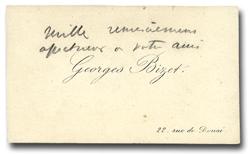 mille remerciemens
affectueux a votre ami
Georges Bizet.
22. rue de Douai